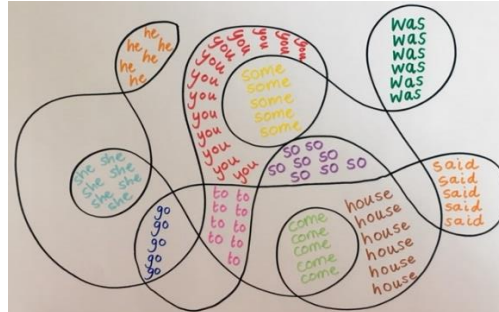 he
he he
he he
he
you
you
you
you
you
you
you
you
you
you
you
you
you
some
some
some
some
some
was
was
was
was
was
was
she she
she she
she she
she
so so
so so so so
so so
said
said
said
said
said
go
go
go
go
go
to to
to to
to to
to to
to
come
come
come
come
come
house
house
house
house
house
house